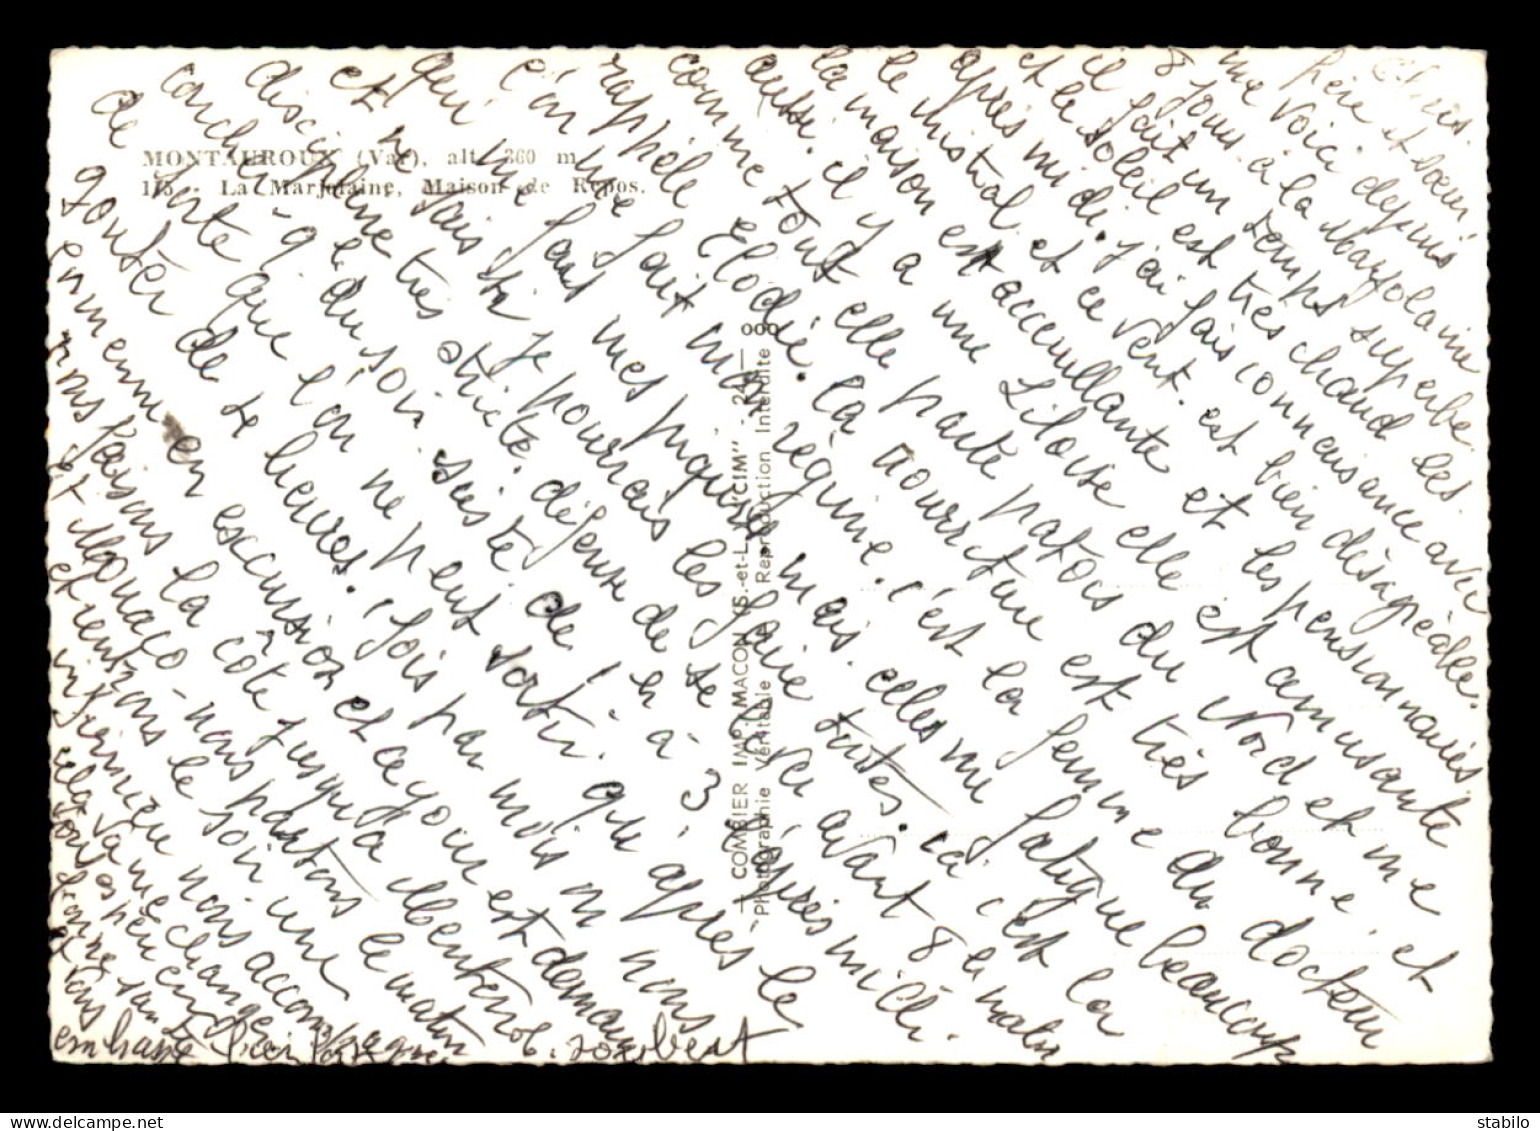 MONTAUROUX (Var), alt. 360 m
175 - La Marjolaine, Maison de Repos.
COMBIER IMP. MACON (S.-et-L.) "CIM"
Photographie Véritable - Reproduction Interdite
Chers
frère et sœur
me voici depuis
8 jours à la Marjolaine
il fait un temps superbe
et le soleil est très chaud les
après midi. j'ai fais connaissance avec
le mistral et ce vent est bien désagréable.
la maison est acceuillante et les pensionnaires
aussi. il y a une Liloise elle est amusante
comme tout elle parle patois du Nord et me
rappèle Elodie. la nourriture est très bonne et
l'on me fait mon régime. c'est la femme du docteur
qui me fait mes piqures mais elles me fatigue beaucoup
et ne sais si je pourrais les faire toutes. ça c'est la
discipline très stricte. défense de se
couché q du soir sieste de 1 h à 3
de sorte que l'on ne peut sortir que après le
gouter de 4 heures. 1 fois par mois on nous
emmene en excursion et ce jour est demain
nous faisons la côte jusqu'à Menton
et Monaco - nous partons le matin
et rentrons le soir une
infirmière nous accompagne
cela va me changer
un peu
bonne santé
et vous
embrasse bien fort